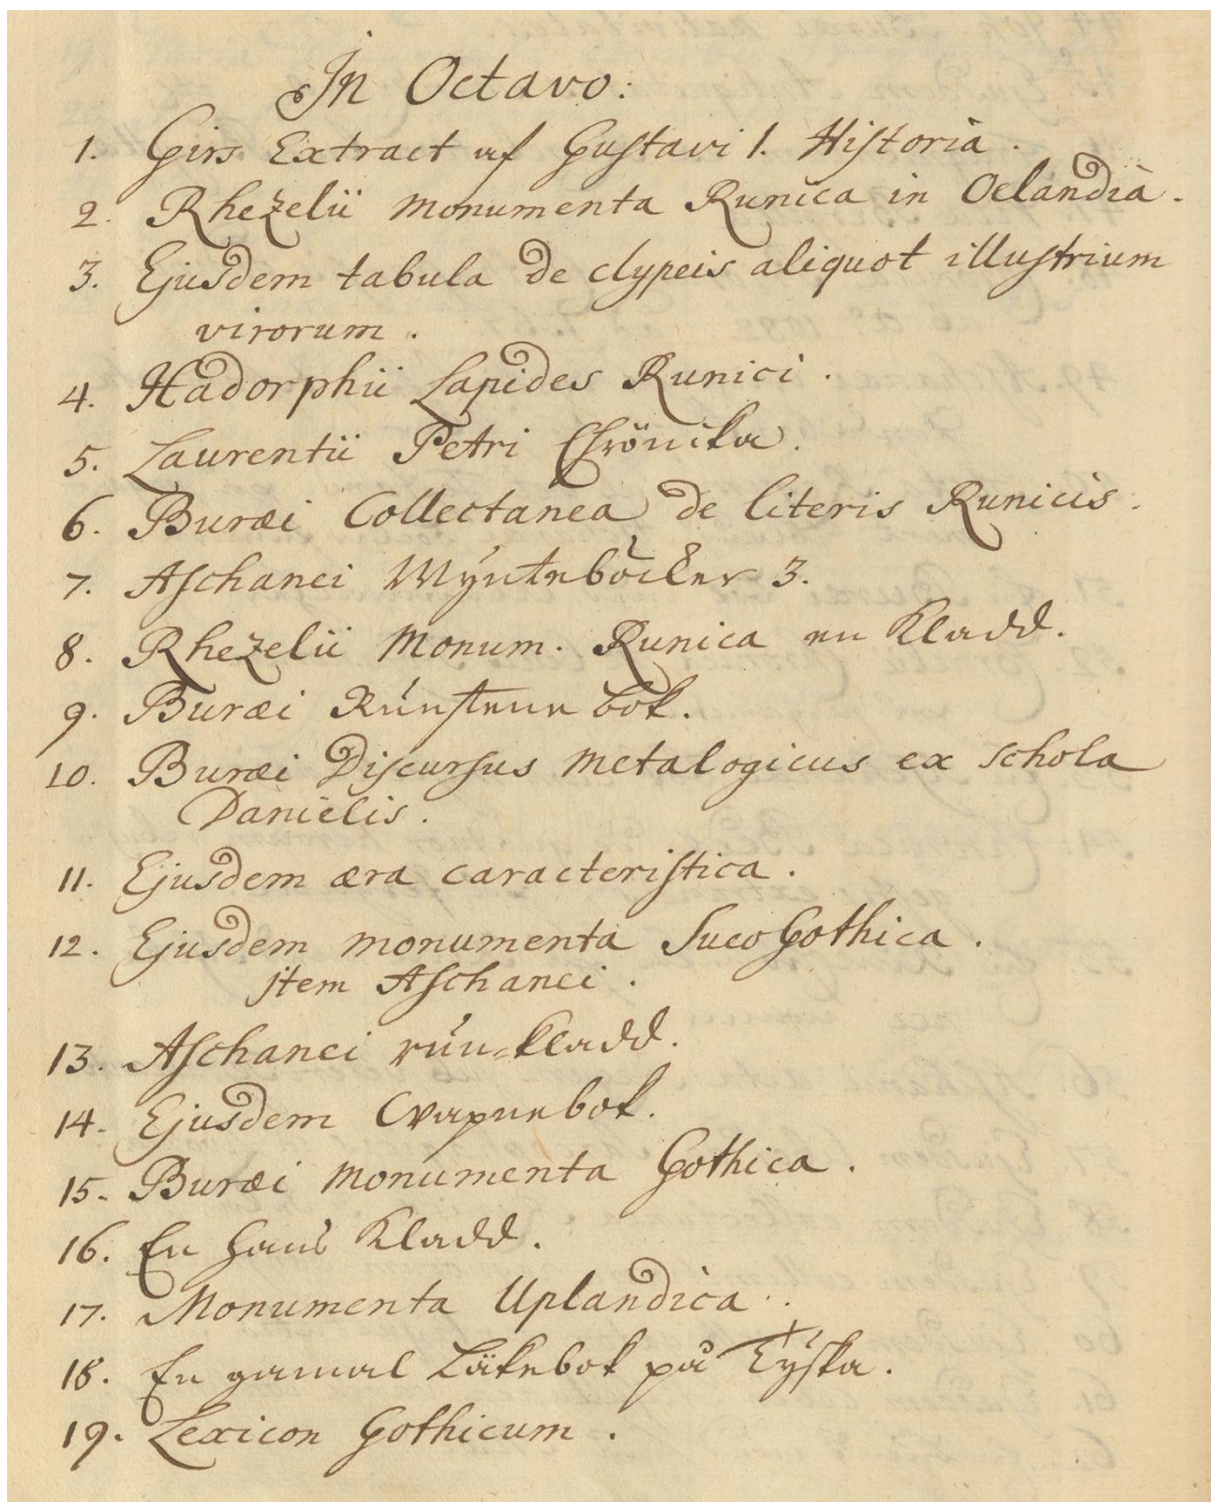 In Octavo:
1. Girs Extract af Gustavi I. Historia.
2. Rhezelii Monumenta Runica in Oelandia.
3. Ejusdem tabula de clypeis aliquot illustrium
virorum.
4. Hadorphii Lapides Runici.
5. Laurentii Petri Chrönika.
6. Buræi Collectanea de literis Runicis.
7. Aschanei Mynteböcker 3.
8. Rhezelii Monum. Runica en Kladd.
9. Buræi Runstene bok.
10. Buræi Discursus Metalogicus ex schola
Danielis.
11. Ejusdem æra caracteristica.
12. Ejusdem monumenta SueoGothica.
jtem Aschanei.
13. Aschanei run-kladd.
14. Ejusdem Wapnebok.
15. Buræi Monumenta Gothica.
16. En hans Kladd.
17. Monumenta Uplandica.
18. En gamal Läkebok på Tyska.
19. Lexicon Gothicum.